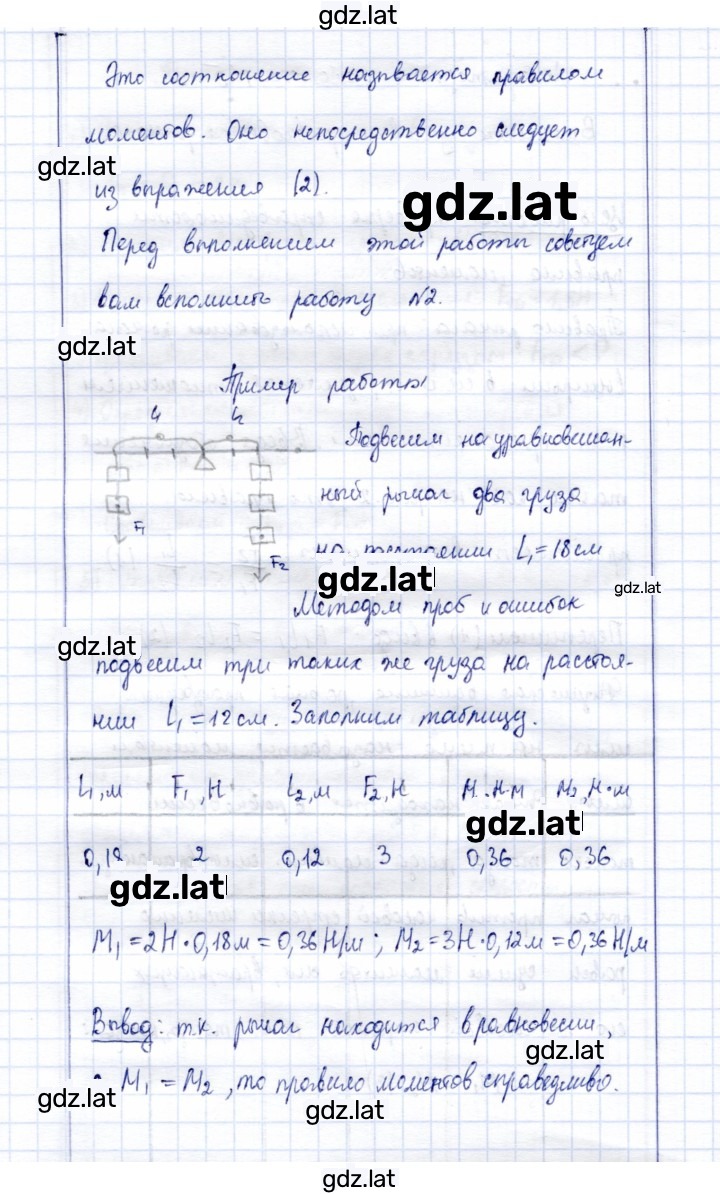 gdz.lat
Это соотношение называется правилом
моментов. Оно непосредственно следует
gdz.lat
из выражения (2).
gdz.lat
Перед выполнением этой работы советуем
вам вспомнить работу №2.
gdz.lat
Пример работы
L₁ L₂
Подвесим на уравновешан-
ный рычаг два груза
F₁
на L₁=18см
F₂
gdz.lat
gdz.lat
Методом проб и ошибок
gdz.lat
подвесим три таких же груза на расстоя-
нии L₁=12см. Заполним таблицу.
L₁,м F₁,Н L₂,м F₂,Н М Н·м М₂,Н·м
gdz.lat
0,18 2 0,12 3 0,36 0,36
gdz.lat
М₁=2Н·0,18м=0,36Н/м; М₂=3Н·0,12м=0,36Н/м
Вывод: т.к. рычаг находится в равновесии,
gdz.lat
М₁=М₂, то правило моментов справедливо.
gdz.lat
gdz.lat
gdz.lat